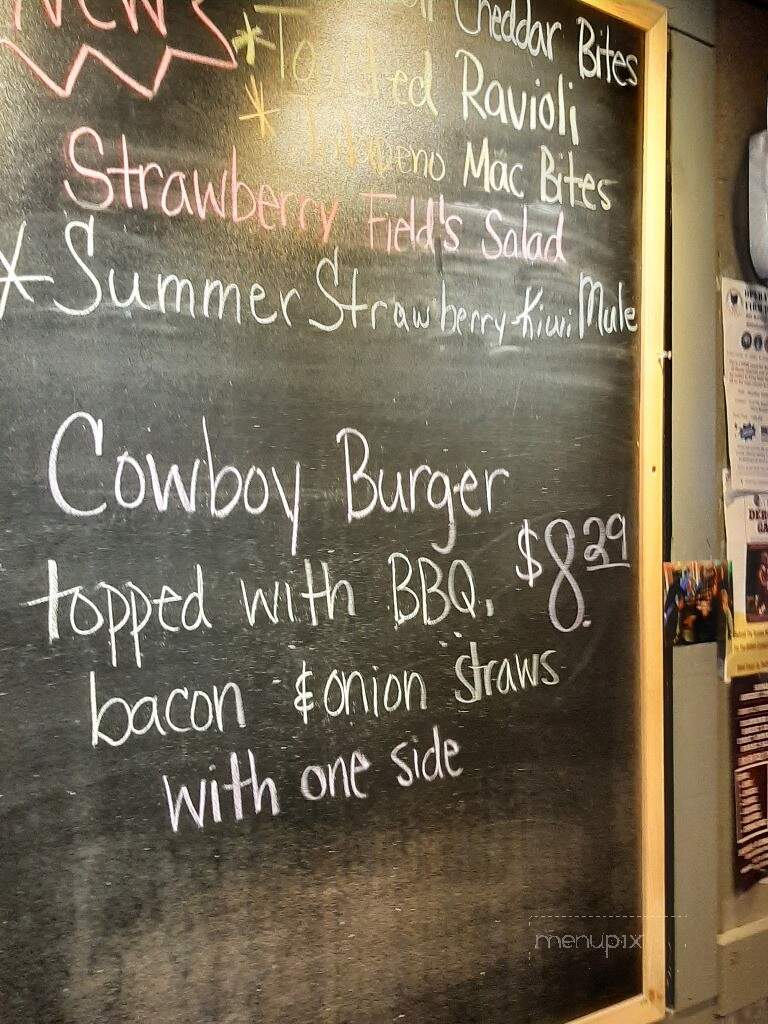 NEW
Cheddar Bites
* Toasted Ravioli
* Jalapeno Mac Bites
Strawberry Field's Salad
* Summer Strawberry Kiwi Mule
Cowboy Burger
topped with BBQ, $8.29
bacon & onion straws
with one side
menupix